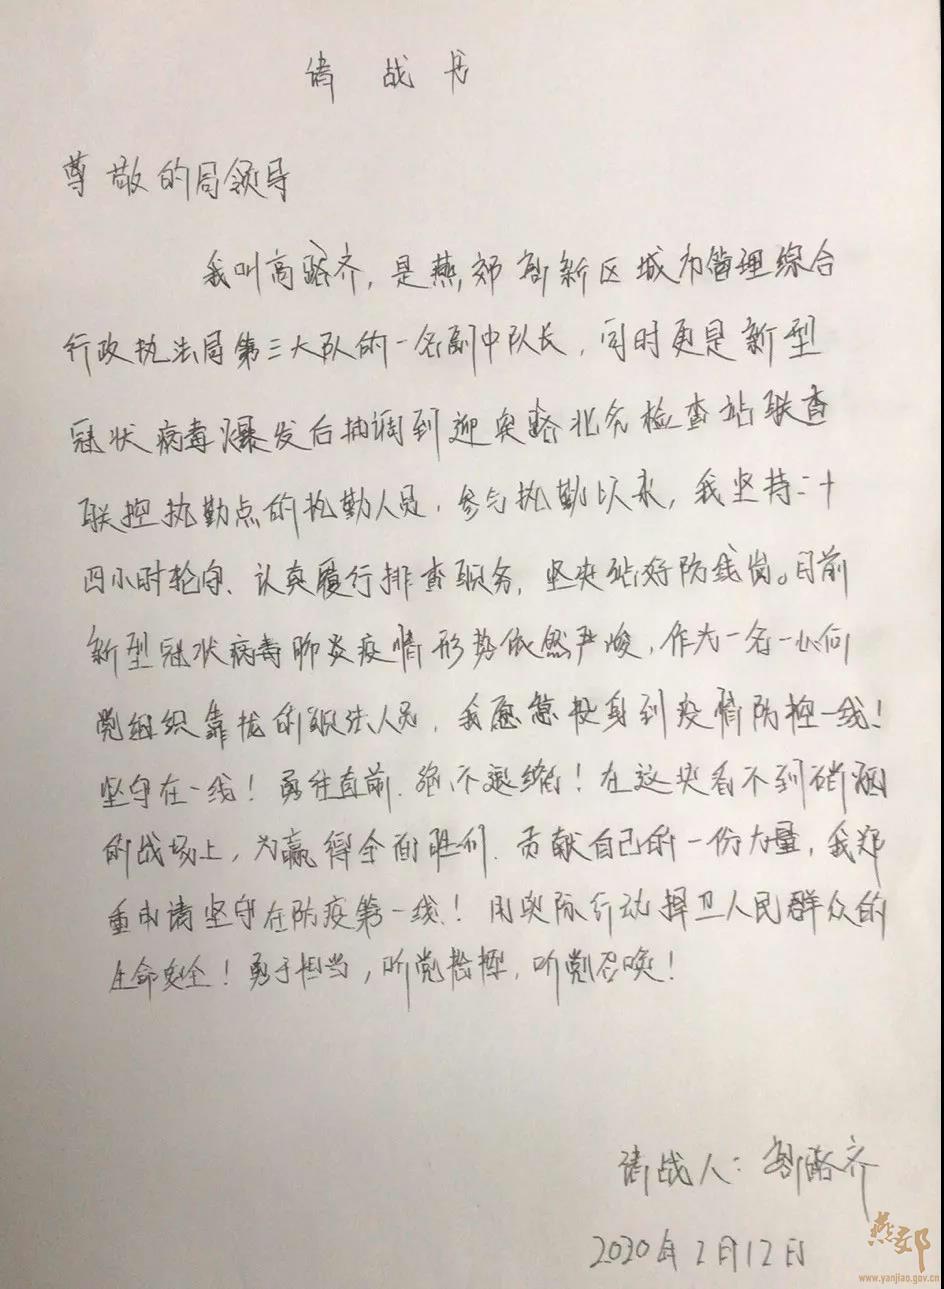 请战书
尊敬的局领导
我叫高路齐，是燕郊高新区城市管理综合
行政执法局第三大队的一名副中队长，同时更是新型
冠状病毒爆发后抽调到迎宾路北务检查站联查
联控执勤点的执勤人员，参与执勤以来，我坚持二十
四小时轮守、认真履行排查职务，坚决站好防线岗。目前
新型冠状病毒肺炎疫情形势依然严峻，作为一名一心向
党组织靠拢的执法人员，我愿意投身到疫情防控一线！
坚守在一线！勇往直前、绝不退缩！在这块看不到硝烟
的战场上，为赢得全面胜利、贡献自己的一份力量，我郑
重申请坚守在防疫第一线！用实际行动捍卫人民群众的
生命安全！勇于担当，听党指挥，听党召唤！
请战人：路齐
2020年2月12日
燕郊
www.yanjiao.gov.cn